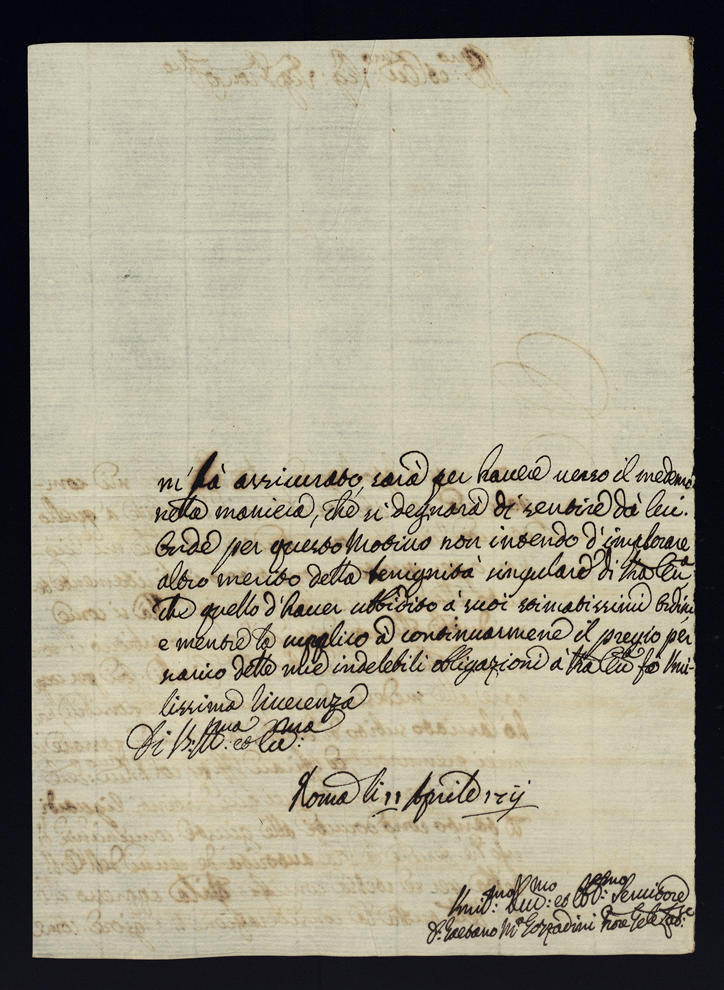 mi hà assicurato, sarà per havere verso il medemo
nella maniera, che si degnarà di sentire dà lui.
Onde per questo Motivo non intendo d'implorare
altro merito della benignità singulare di
che quello d'haver ubbidito à suoi stimatissimi Ordini
e mentre la supplico à continuarmene il pregio per
carico delle mie indelebili obligazioni à fò Umi-
lissima riverenza
Di V: Ill:ma et Ecc:ma
Roma li 11 Aprile
Umil:mo Div:mo et Obl:mo Servitore
D. Gaetano M.a Gozzadini